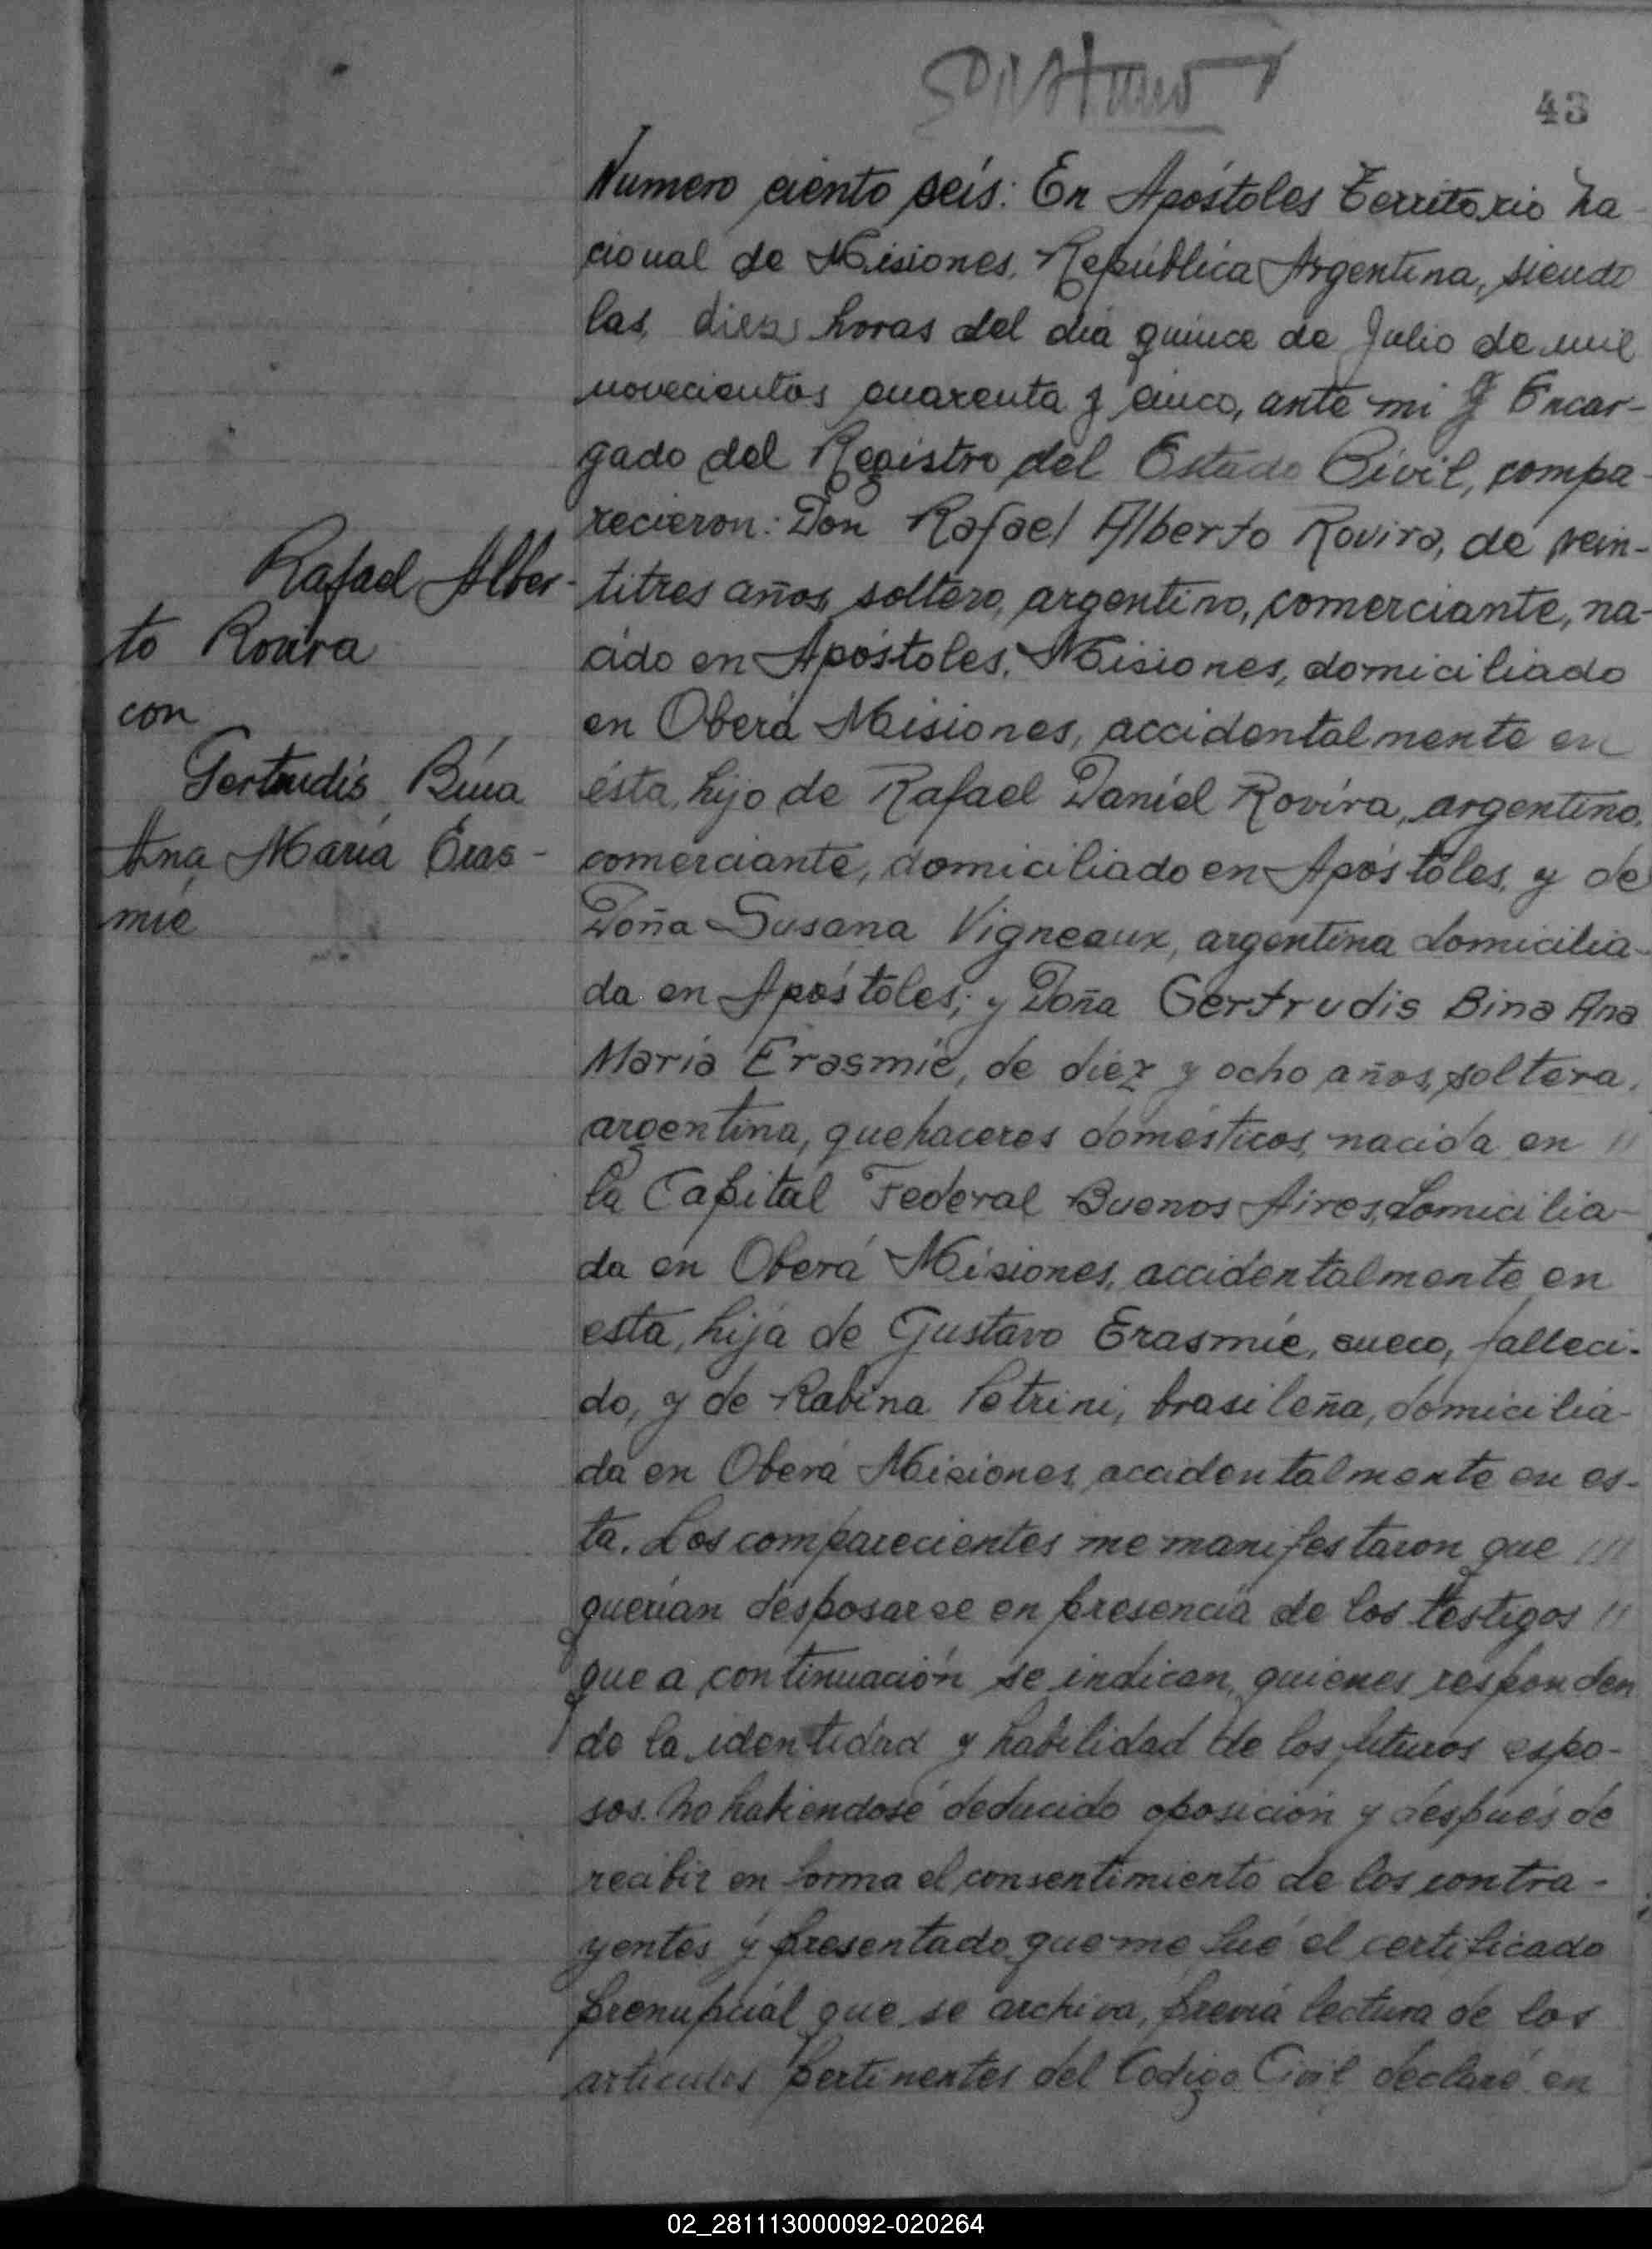 43
Numero ciento seis: En Apóstoles Territorio Na-
cional de Misiones, República Argentina, siendo
las diez horas del dia quince de Julio de mil
novecientos cuarenta y cinco, ante mi J Encar-
gado del Registro del Estado Civil, compa-
recieron: Don Rafael Alberto Rovira, de vein-
titres años, soltero, argentino, comerciante, na-
cido en Apóstoles, Misiones, domiciliado
en Oberá Misiones, accidentalmente en
ésta, hijo de Rafael Daniel Rovira, argentino,
comerciante, domiciliado en Apóstoles, y de
Doña Susana Vigneaux, argentina domicilia-
da en Apóstoles; y Doña Gertrudis Bina Ana
Maria Erasmie, de diez y ocho años, soltera,
argentina, quehaceres domésticos, nacida en "
la Capital Federal Buenos Aires, domicilia-
da en Oberá Misiones, accidentalmente en
esta, hija de Gustavo Erasmie, sueco, falleci-
do, y de Rabina Petrini, brasileña, domicilia-
da en Oberá Misiones, accidentalmente en es-
ta. Los comparecientes me manifestaron que ///
querian desposarse en presencia de los testigos //
que a continuación se indican, quienes responden
de la identidad y habilidad de los futuros espo-
sos. No habiendose deducido oposición y después de
recibir en forma el consentimiento de los contra-
yentes y presentado que me fué el certificado
prenupcial que se archiva, previa lectura de los
articulos pertinentes del Codigo Civil declaré en
Rafael Alber-
to Rovira
con
Gertrudis Bina
Ana María Eras-
mie
02_281113000092-020264